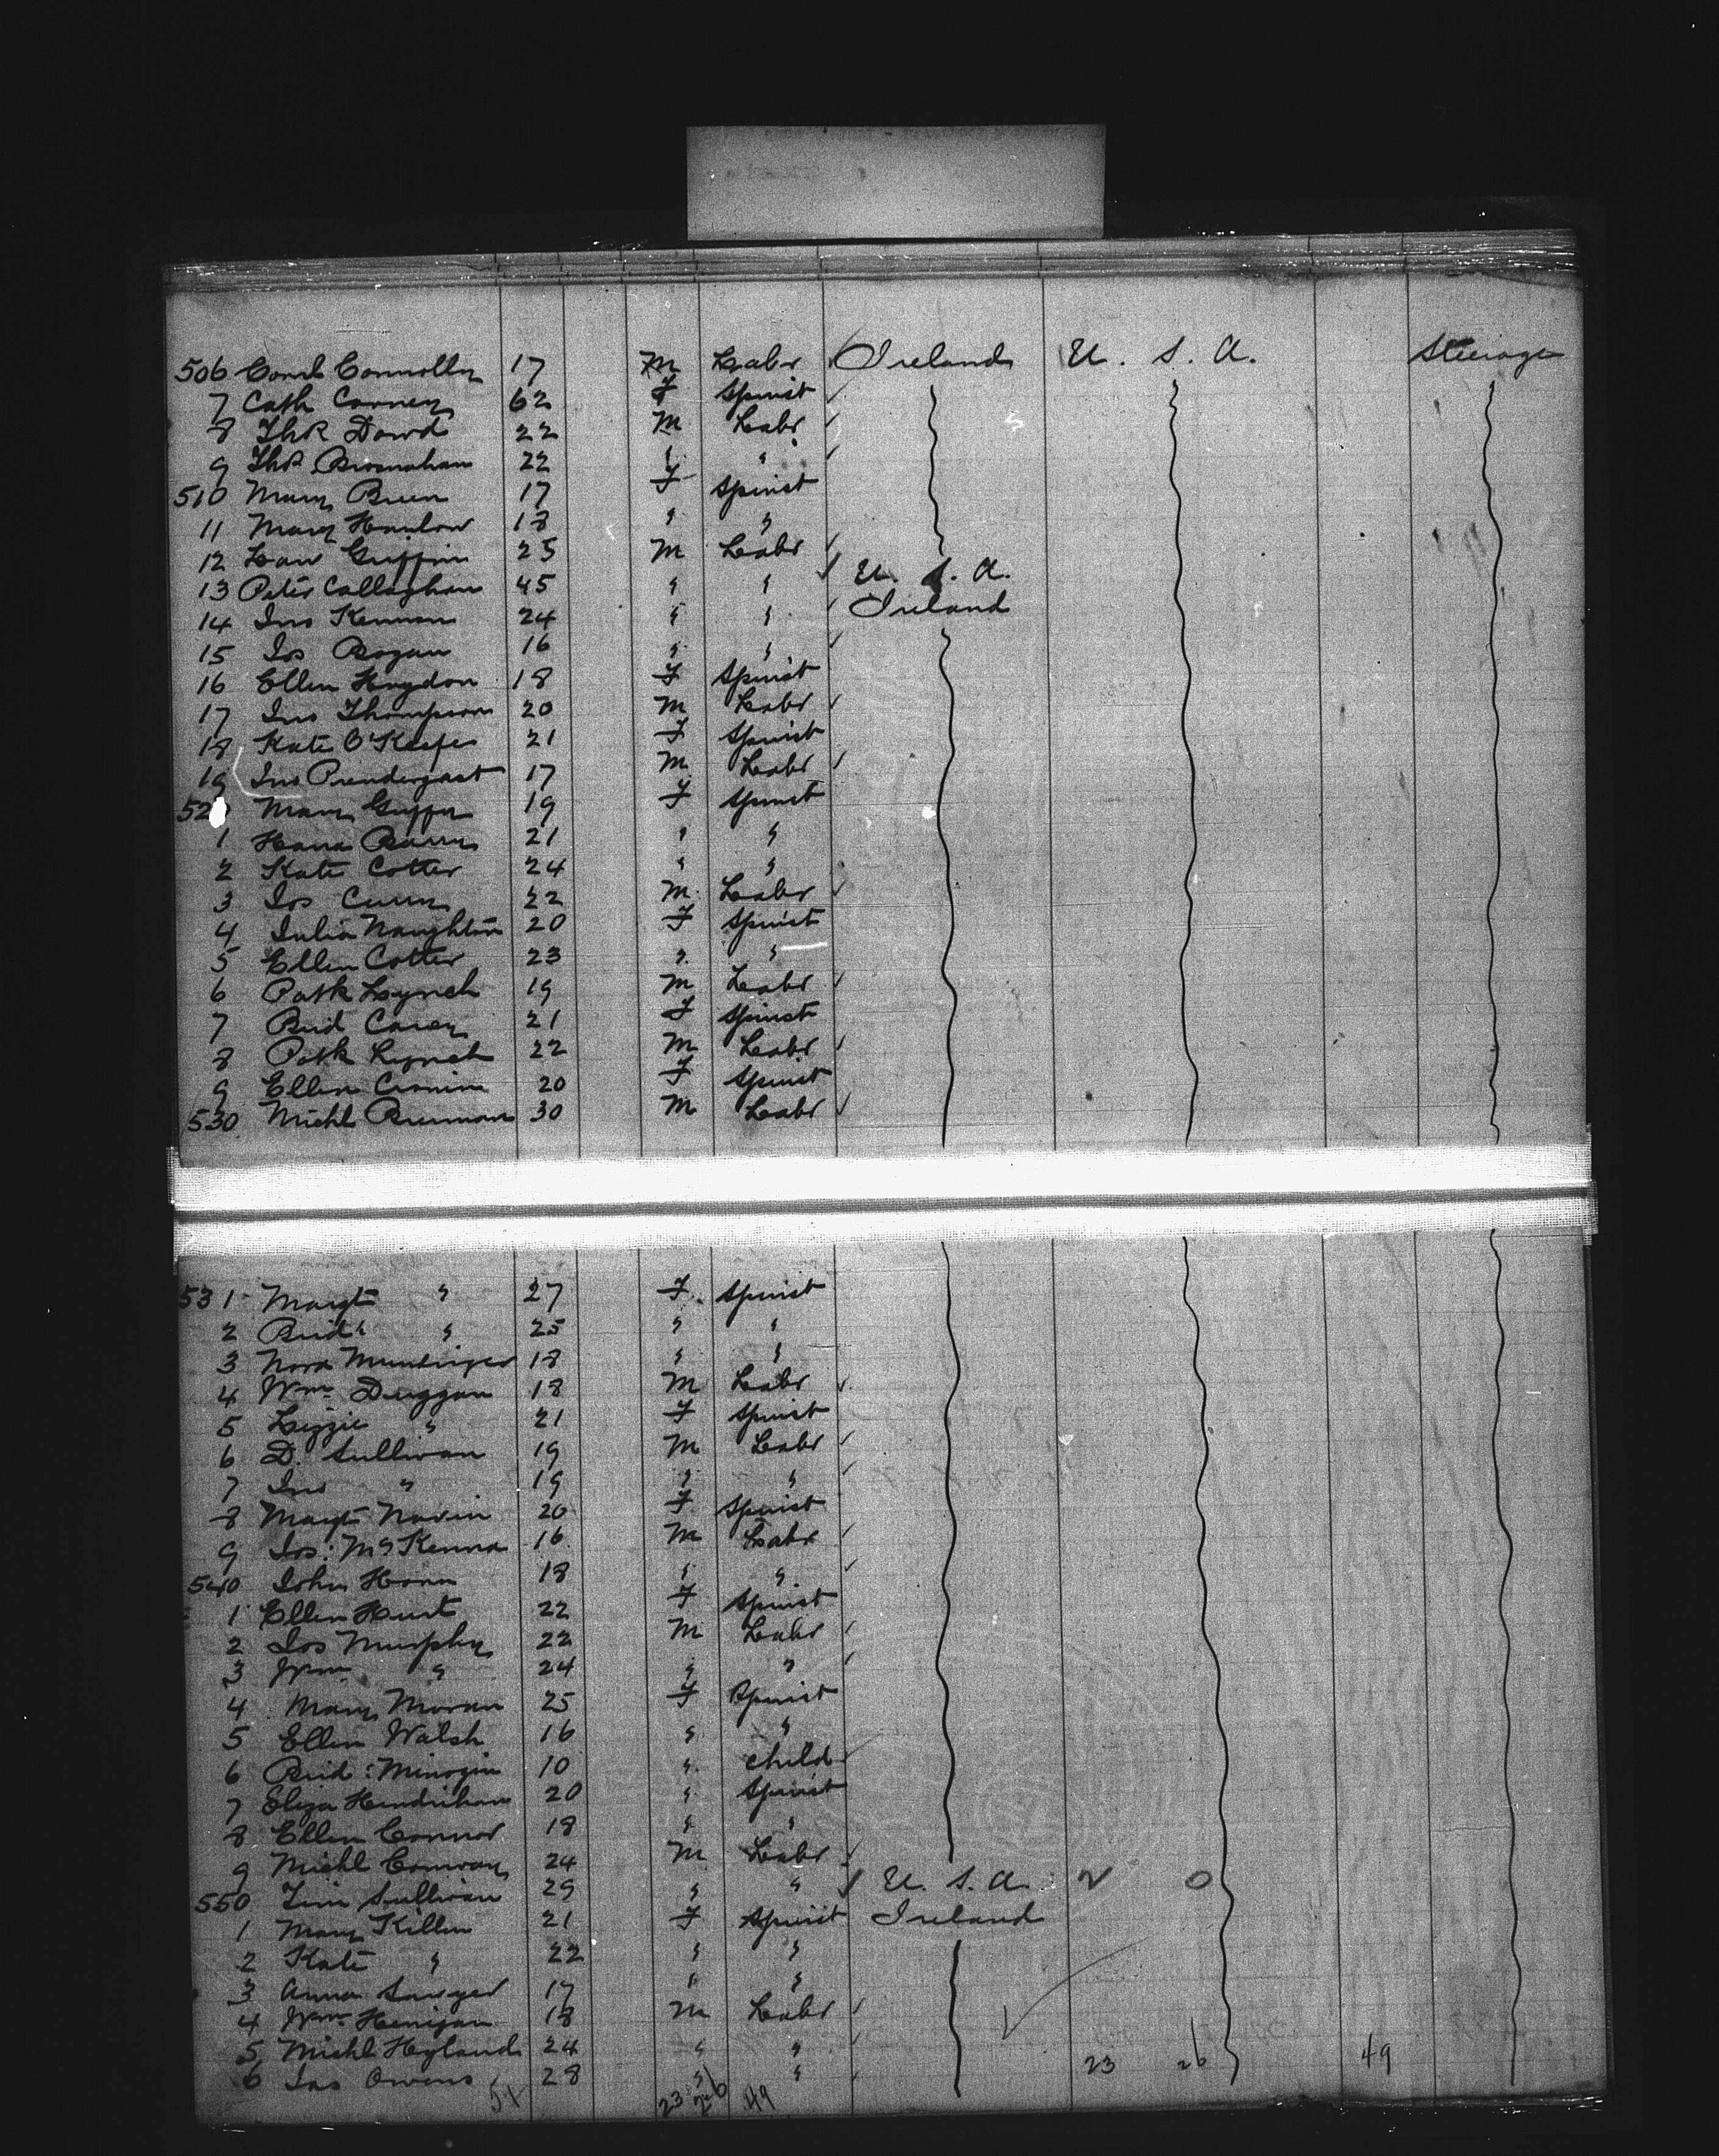 506 Corns Connolly 17 M Labr Ireland U. S. A. Steerage
7 Cath Carney 62 F Spinst
8 Thos Dowd 22 M Labr
9 Thos Brosnahan 22 " "
510 Mary Breen 17 F Spinst
11 Mary Hanlon 18 " "
12 Law Griffin 25 M Labr
13 Peter Callaghan 45 " " U. S. A.
14 Jno Kennan 24 " " Ireland
15 Jos Bogan 16 " "
16 Ellen Haydon 18 F Spinst
17 Jno Thompson 20 M Labr
18 Kate O'Keefe 21 F Spinst
19 Jno Prendergast 17 M Labr
52 Mary 19 F Spinst
1 Hana Barry 21 " "
2 Kate Cotter 24 " "
3 Jos Curry 22 M Labr
4 Julia Naughton 20 F Spinst
5 Ellen Cotter 23 " "
6 Patk Lynch 19 M Labr
7 Brid Carey 21 F Spinst
8 Patk Lynch 22 M Labr
9 Ellen Cronin 20 F Spinst
530 Michl Brennan 30 M Labr
531 Margt " 27 F Spinst
2 Brid " 25 " "
3 Nora 18 " "
4 Wm Duggan 18 M Labr
5 Lizzie " 21 F Spinst
6 D. Sullivan 19 M Labr
7 Jno " 19 " "
8 Margt Navin 20 F Spinst
9 Jos: McKenna 16 M Labr
540 John Horan 18 " "
1 Ellen Hurst 22 F Spinst
2 Jos Murphy 22 M Labr
3 Wm " 24 " "
4 Mary Moran 25 F Spinst
5 Ellen Walsh 16 " "
6 Brid: Minogin 10 " Child
7 Eliza Hendrihan 20 " Spinst
8 Ellen Connor 18 " "
9 Michl Conway 24 M Labr
550 Tim Sullivan 29 " " U. S. A. 0
1 Mary Killen 21 F Spinst Ireland
2 Kate " 22 " "
3 Anna Sawyer 17 " "
4 Wm Henijan 18 M Labr
5 Michl Hyland 24 " "
6 Jas Owens 28 " " 23 26 49
51 23 26 49